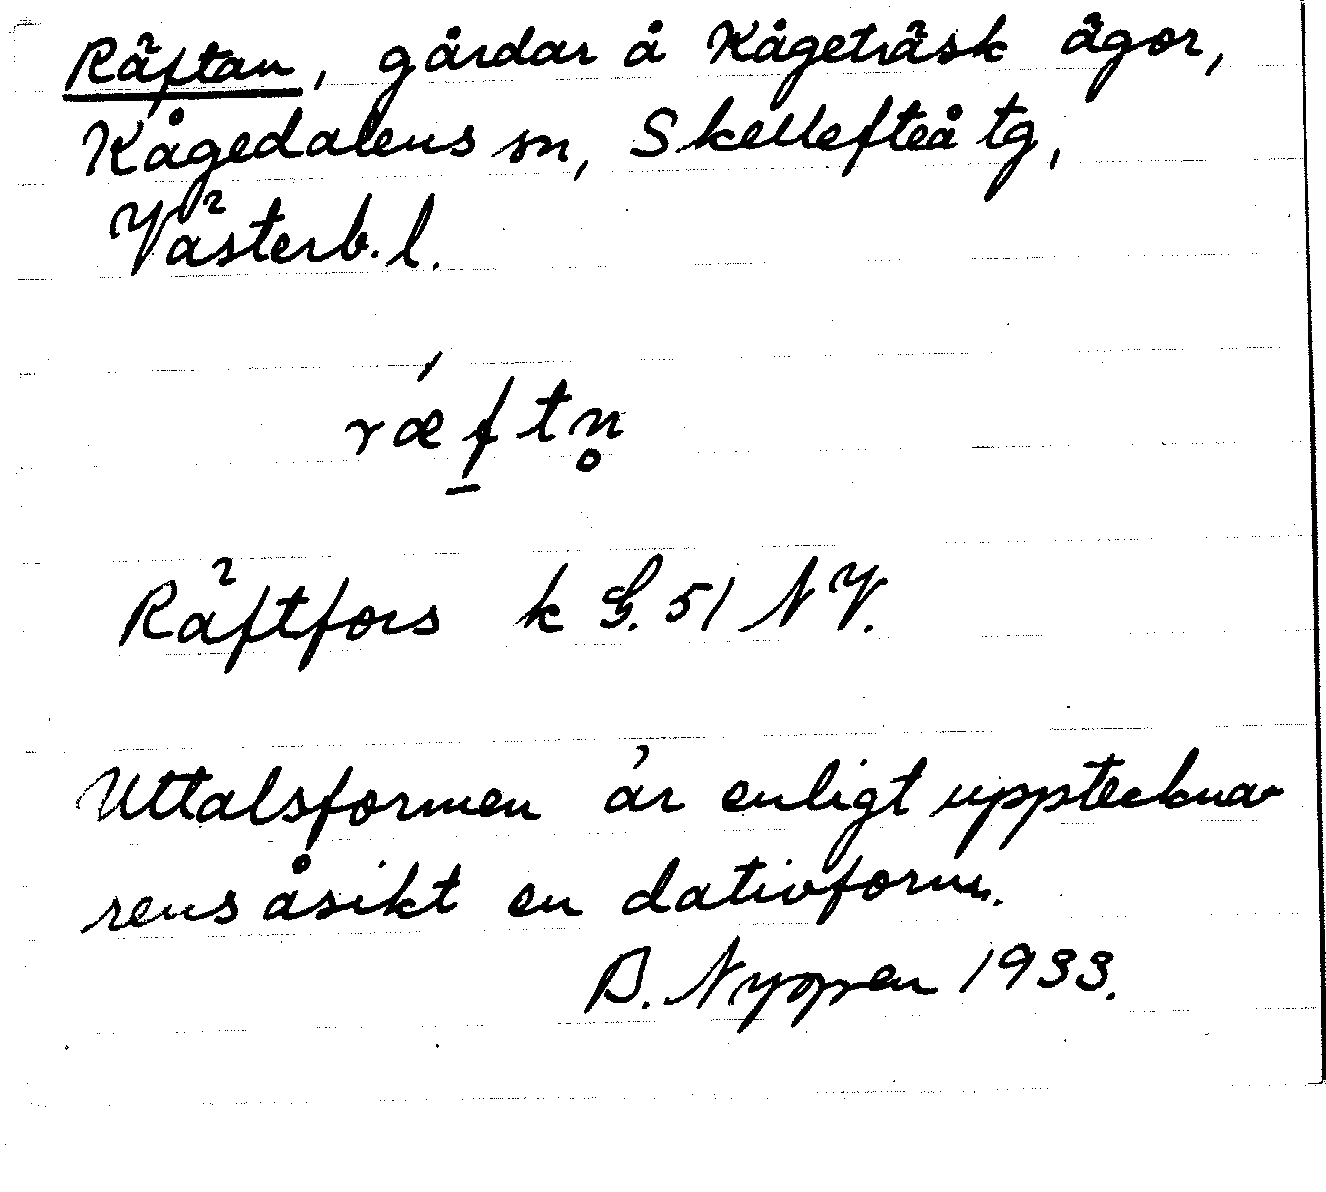 Räftan, gårdar å Kågeträsk ägor,
Kågedalens sn, Skellefteå tg,
Västerb. l.
rǽf̱tn̥
Räftfors k G. 51 NV.
Uttalsformen är enligt uppteckna-
rens åsikt en dativform.
B. 1933.